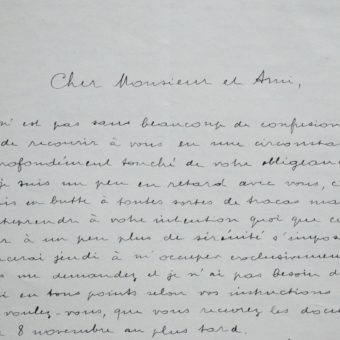 Cher Monsieur et Ami,
n'est pas sans beaucoup de confusion
de recourir à vous en une circonsta
rofondément touché de votre obligean
je suis un peu en retard avec vous, c
is en butte à toutes sortes de tracas ma
treprendre à votre intention quoi que ce
r à un peu plus de sérénité s'impos
cerai jeudi à m'occuper exclusivemen
s me demandez et je n'ai pas besoin d
i en tous points selon vos instructions
voulez-vous, que vous recevrez les docu
r 8 novembre au plus tard.